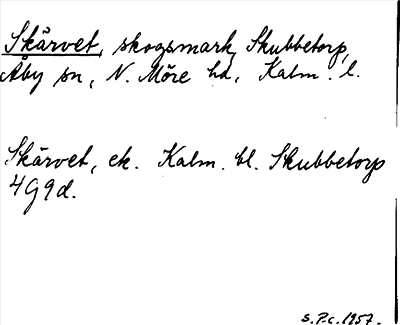 Skärvet, skogsmark, Skubbetorp,
Åby sn, N. Möre hd, Kalm. l.
Skärvet, ek. Kalm. bl. Skubbetorp
4G9d.
S.P.c. 1957.